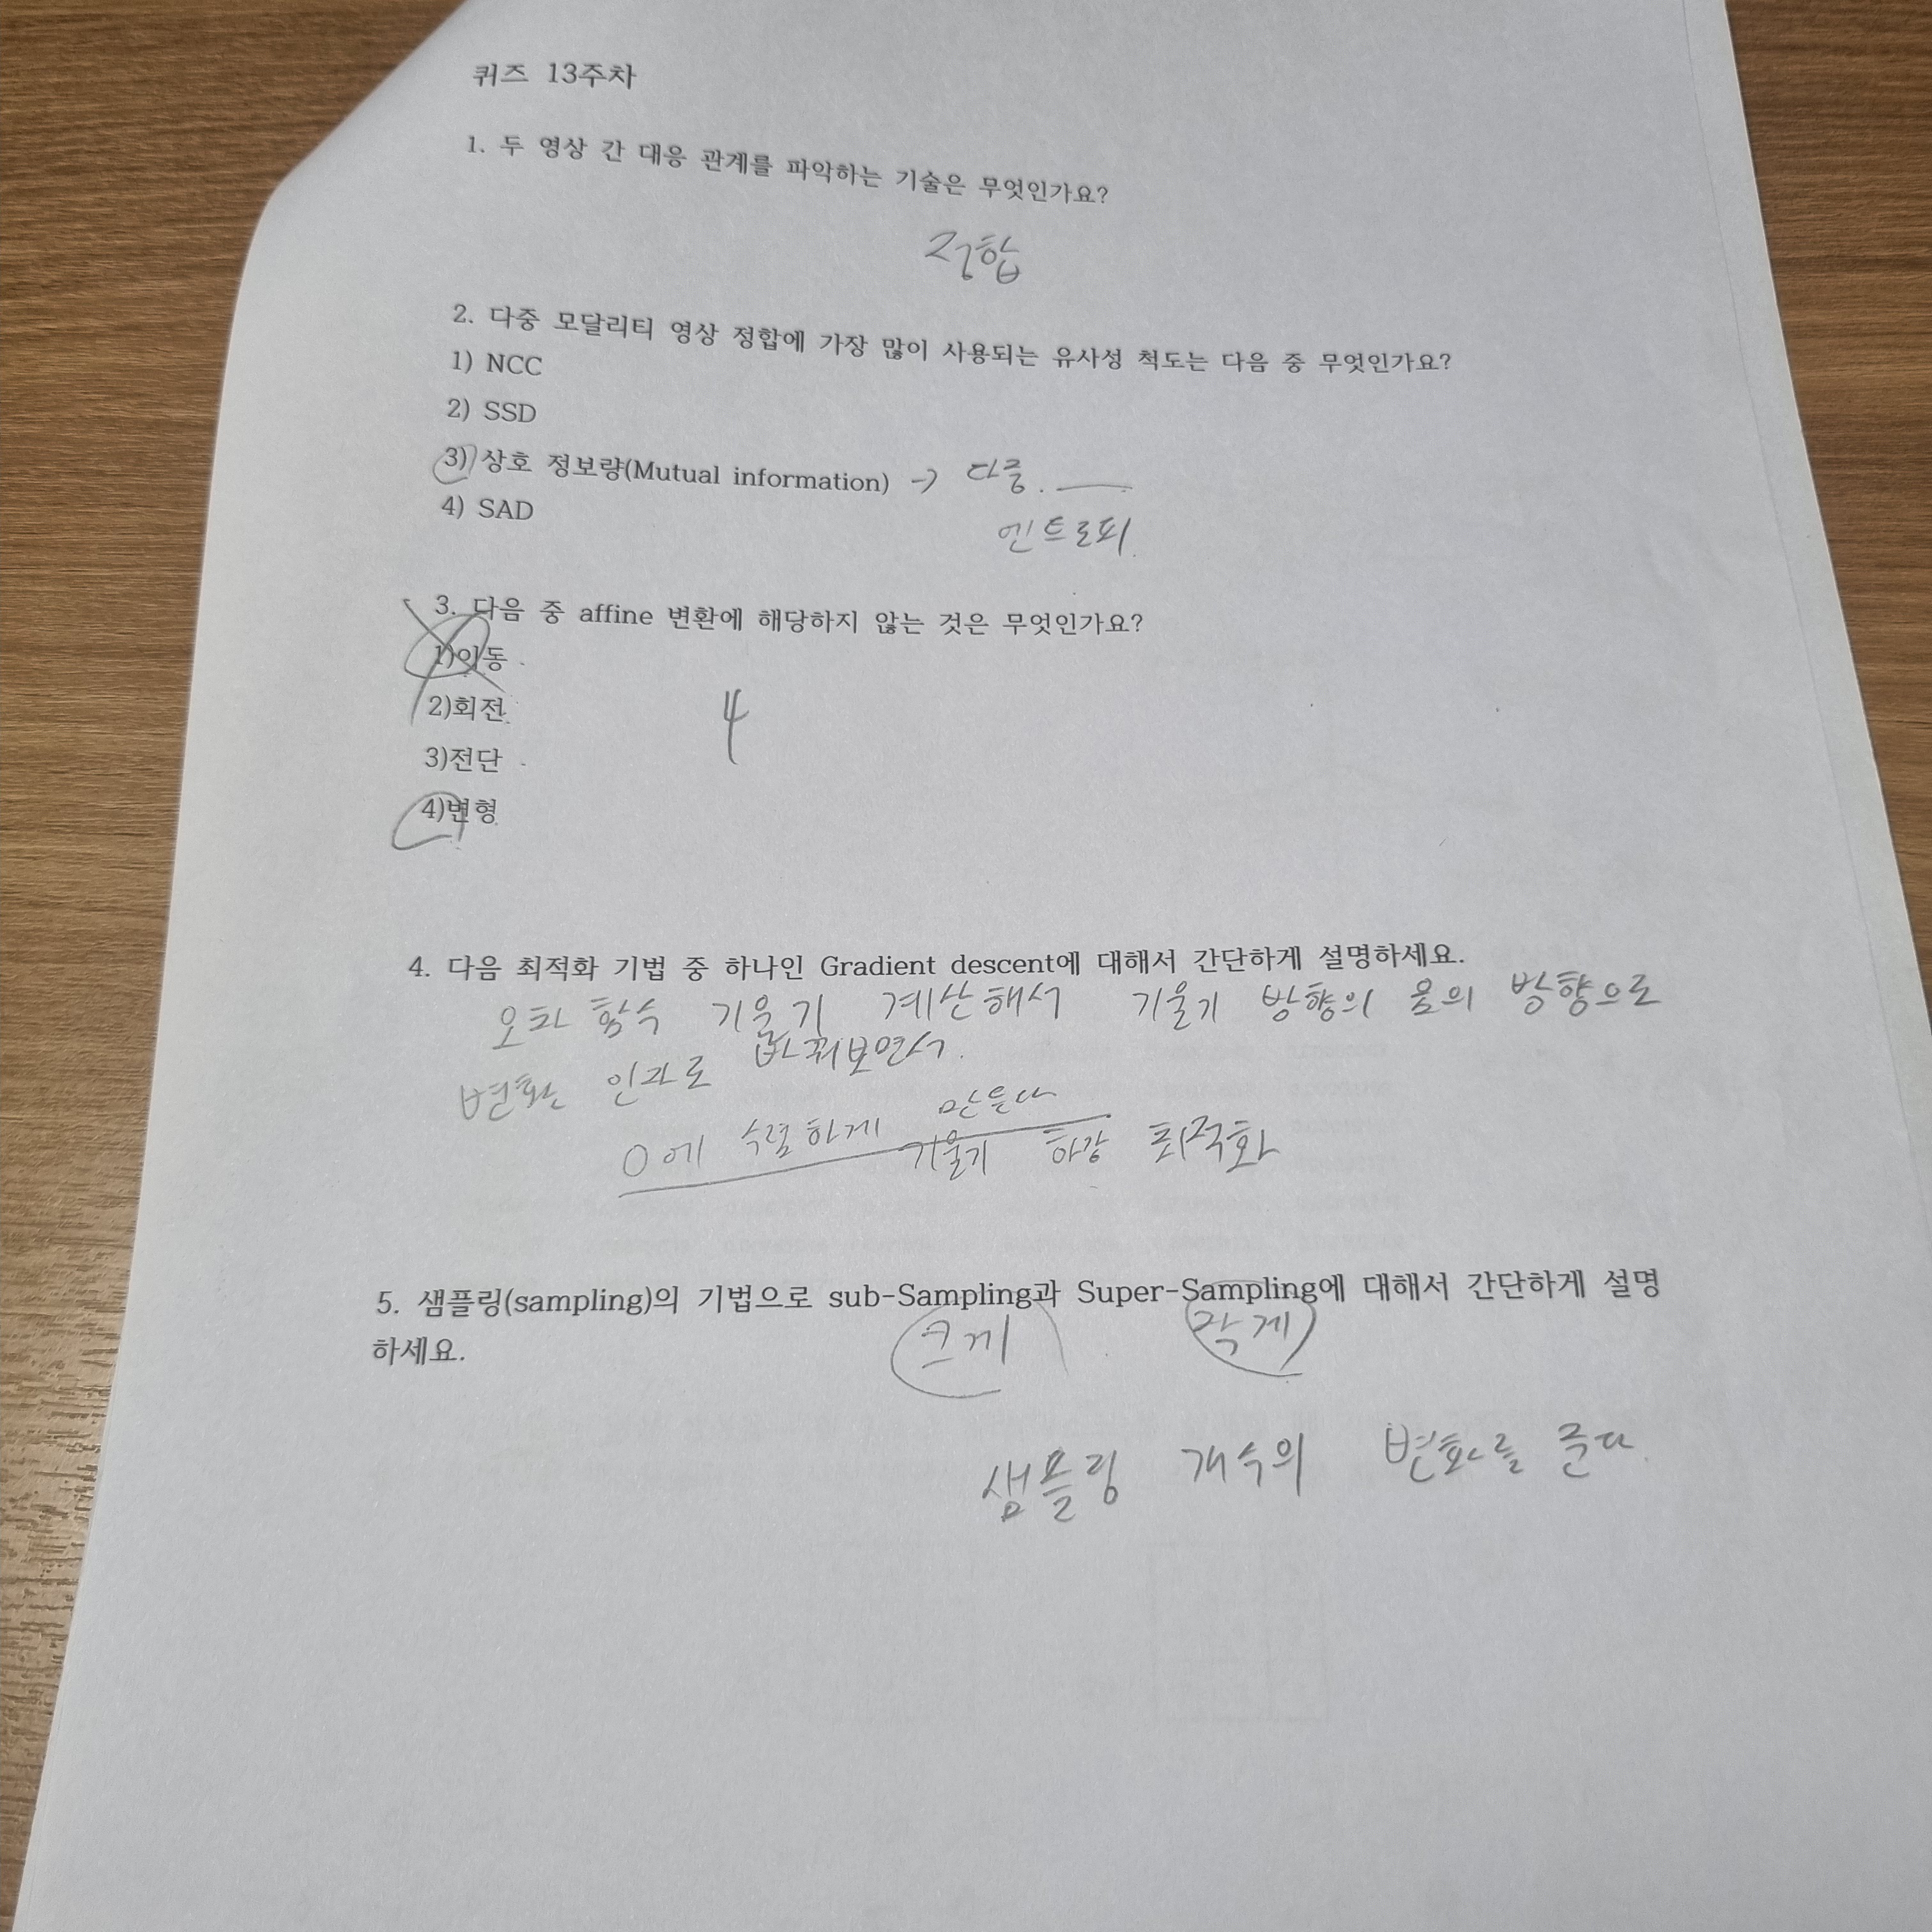 퀴즈 13주차
1. 두 영상 간 대응 관계를 파악하는 기술은 무엇인가요?
정합
2. 다중 모달리티 영상 정합에 가장 많이 사용되는 유사성 척도는 다음 중 무엇인가요?
1) NCC
2) SSD
3) 상호 정보량(Mutual information) → 다중.
엔트로피.
4) SAD
3. 다음 중 affine 변환에 해당하지 않는 것은 무엇인가요?
1)이동
2)회전
4
3)전단
4)변형
4. 다음 최적화 기법 중 하나인 Gradient descent에 대해서 간단하게 설명하세요.
오차 함수 기울기 계산해서 기울기 방향의 음의 방향으로
변환 인자로 바꿔보면서.
0에 수렴하게 만든다
기울기 하강 최적화
5. 샘플링(sampling)의 기법으로 sub-Sampling과 Super-Sampling에 대해서 간단하게 설명
하세요.
크게 작게
샘플링 개수의 변화를 준다.